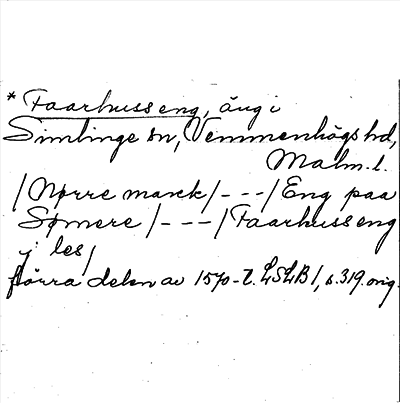 * Faarhusseng, äng i
Simlinge sn, Vemmenhögs hd,
Malm. l.
/Nørre marck/---/Eng paa
Sømere/---/Faarhusseng
j les/
förra delen av 1570-t. LSLB 1, s. 319. orig.